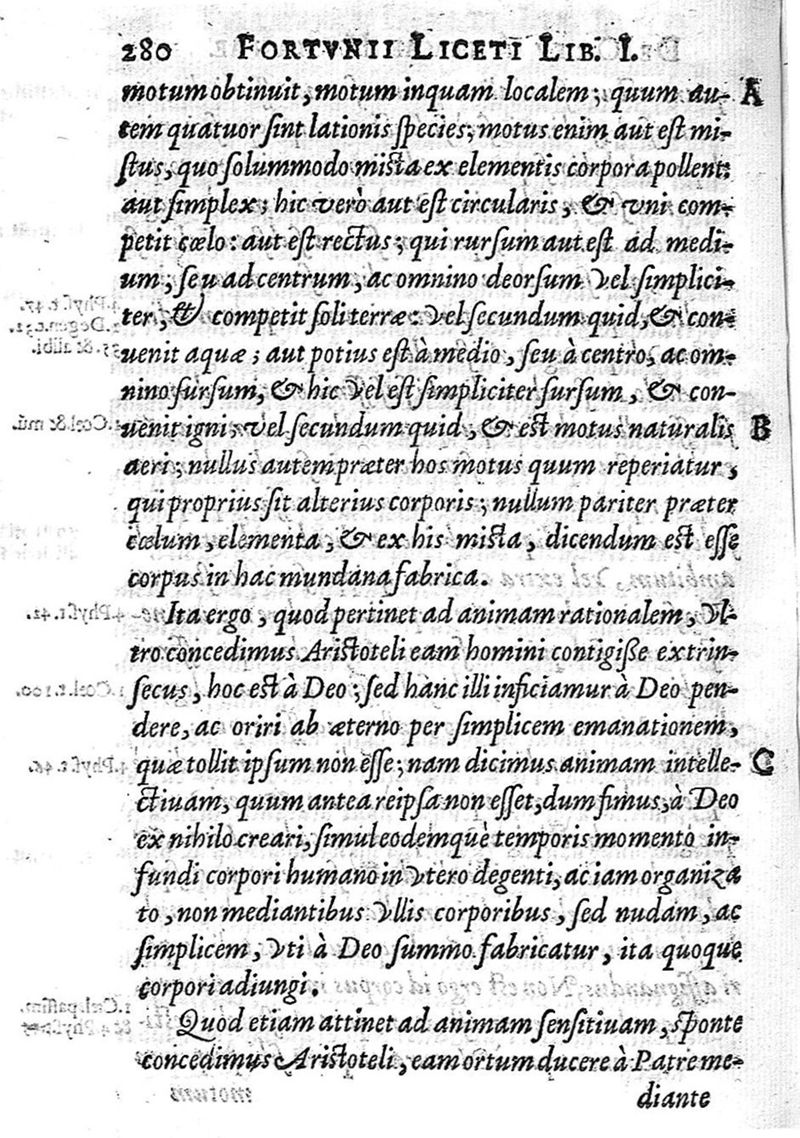 280 FORTVNII LICETI LIB. I.
motum obtinuit, motum inquam localem; quum au- A
tem quatuor sint lationis species, motus enim aut est mi-
stus, quo solummodo mista ex elementis corpora pollent:
aut simplex; hic verò aut est circularis, & vni com-
petit cœlo: aut est rectus; qui rursum aut est ad medi-
um, seu ad centrum, ac omnino deorsum vel simplici-
ter, & competit soli terræ: vel secundum quid, & con-
uenit aquæ; aut potius est à medio, seu à centro, ac om-
nino sursum, & hic vel est simpliciter sursum, & con-
uenit igni; vel secundum quid, & est motus naturalis B
aeri; nullus autem præter hos motus quum reperiatur,
qui proprius sit alterius corporis; nullum pariter præter
cœlum, elementa, & ex his mista, dicendum est esse
corpus in hac mundana fabrica.
Ita ergo, quod pertinet ad animam rationalem, vl-
tro concedimus Aristoteli eam homini contigiße extrin-
secus, hoc est à Deo; sed hanc illi inficiamur à Deo pen-
dere, ac oriri ab æterno per simplicem emanationem,
quæ tollit ipsum non esse; nam dicimus animam intelle- C
ctiuam, quum antea reipsa non esset, dum fimus, à Deo
ex nihilo creari, simul eodemquè temporis momento in-
fundi corpori humano in vtero degenti, ac iam organiza
to, non mediantibus vllis corporibus, sed nudam, ac
simplicem, vti à Deo summo fabricatur, ita quoque
corpori adiungi.
Quod etiam attinet ad animam sensitiuam, sponte
concedimus Aristoteli, eam ortum ducere à Patre me-
diante